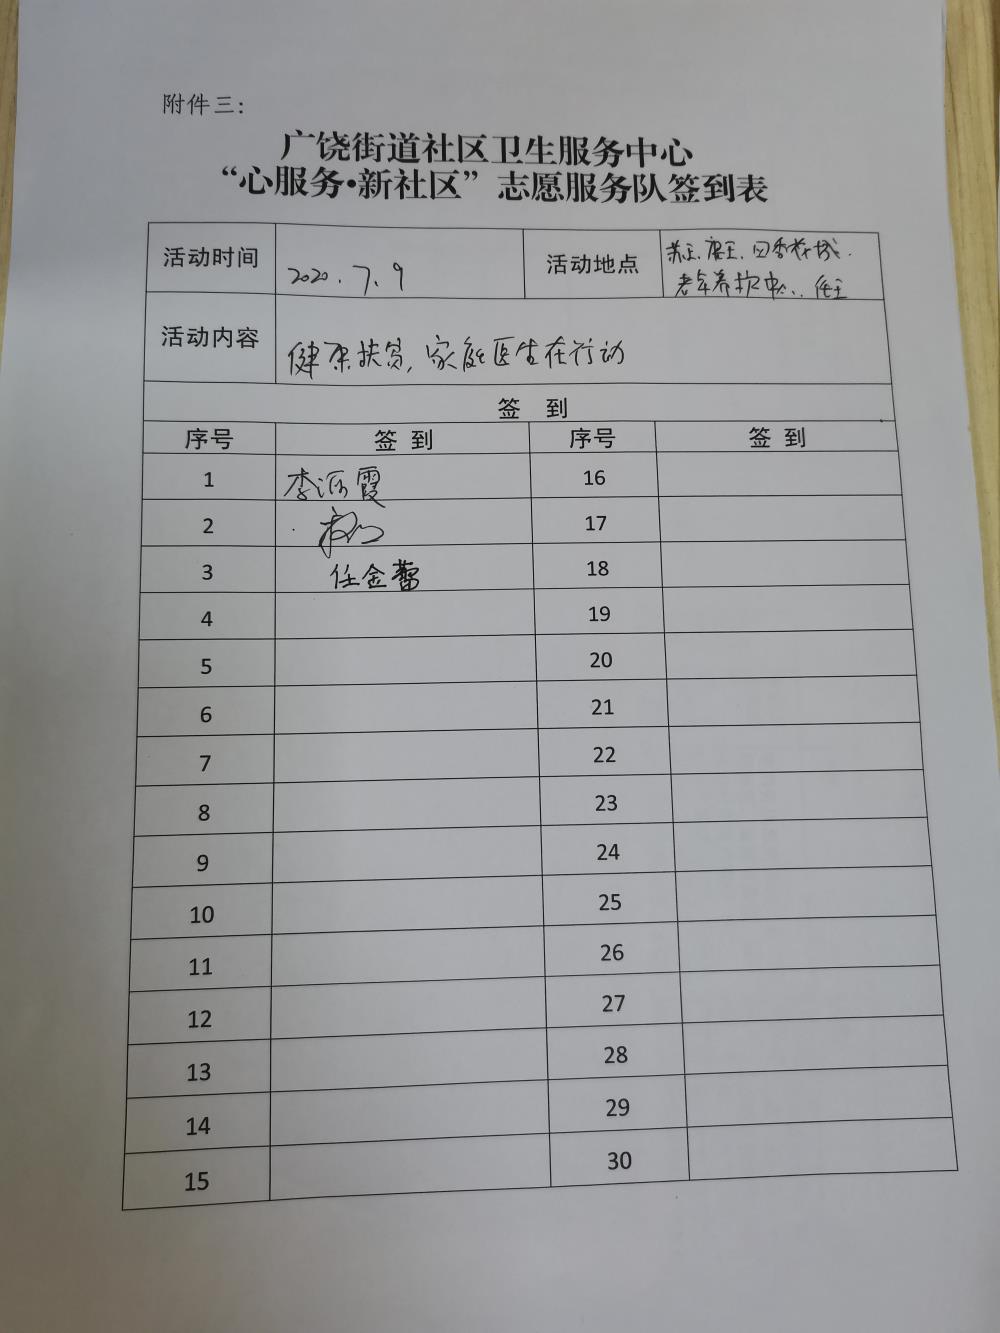 附件三:
广饶街道社区卫生服务中心
“心服务•新社区”志愿服务队签到表
活动时间 2020.7.9 活动地点
老年养护中心、任王
活动内容 健康扶贫,家庭医生在行动
签 到
序号 签到 序号 签到
1 李 霞 16
2 17
3 任金蕾 18
4 19
5 20
6 21
7 22
8 23
9 24
10 25
11 26
12 27
13 28
14 29
15 30